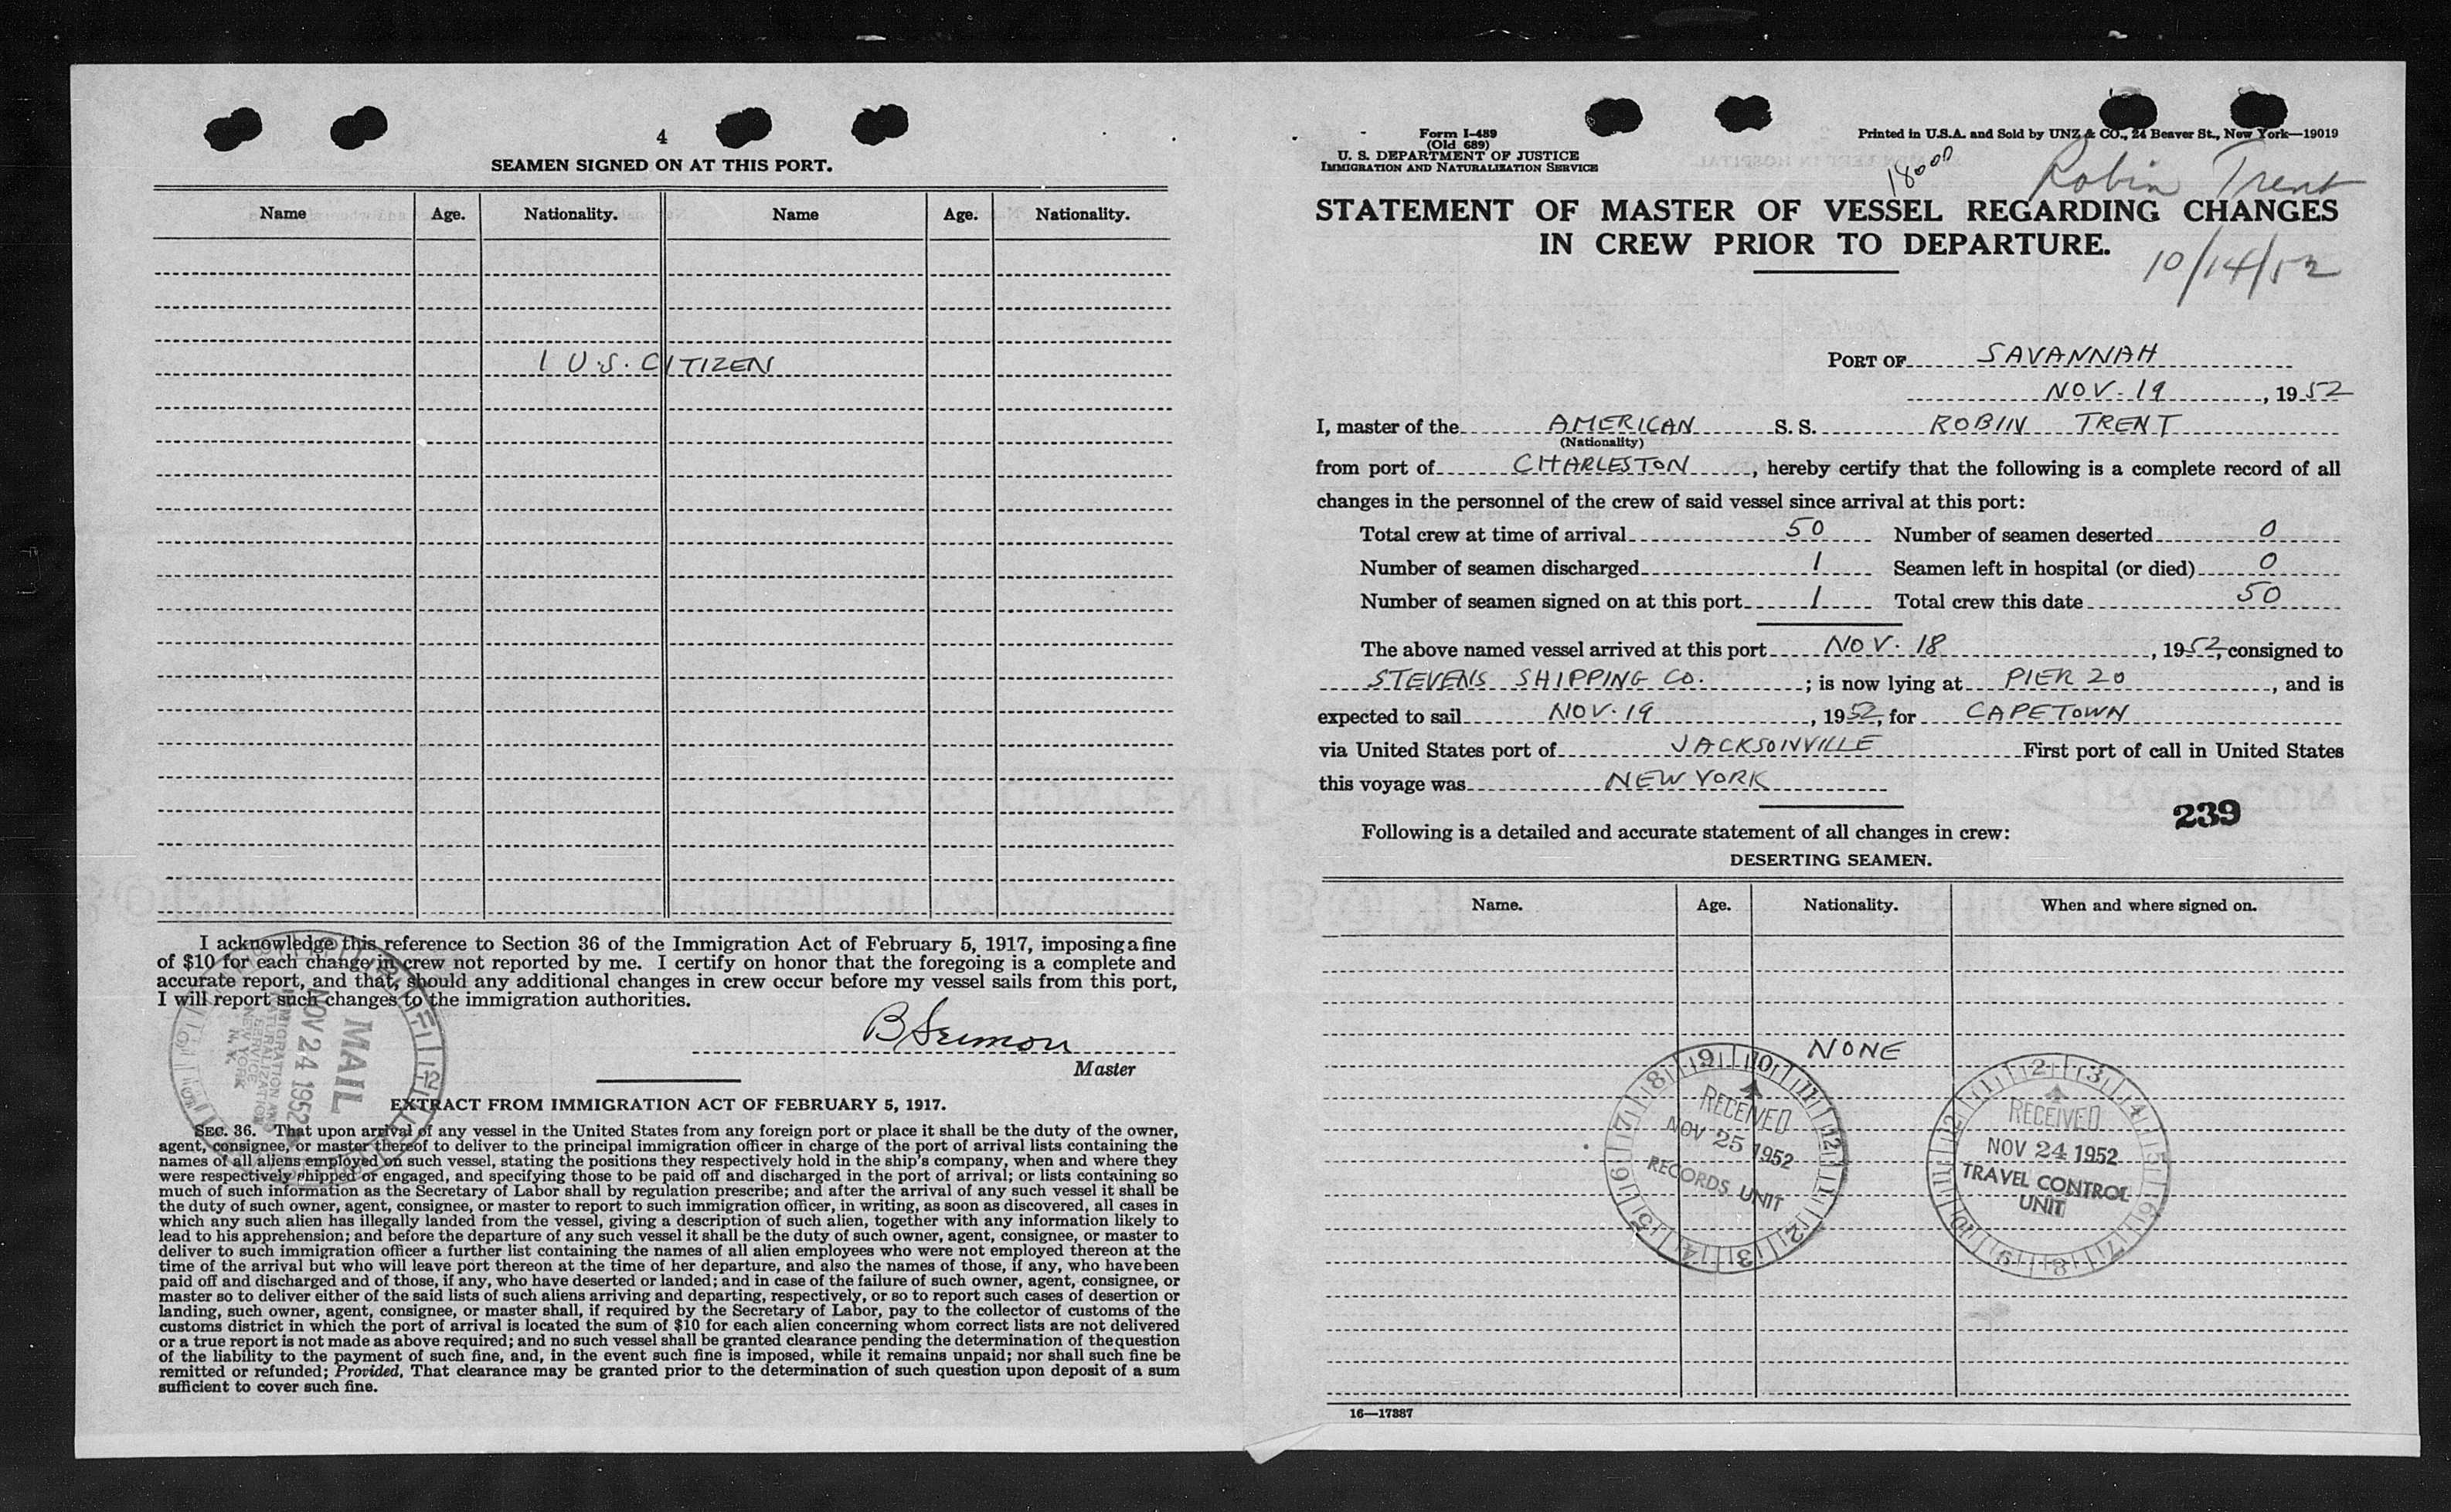 4
SEAMEN SIGNED ON AT THIS PORT.
Name Age. Nationality. Name Age. Nationality.
1 U.S. CITIZEN
I acknowledge this reference to Section 36 of the Immigration Act of February 5, 1917, imposing a fine
of $10 for each change in crew not reported by me. I certify on honor that the foregoing is a complete and
accurate report, and that, should any additional changes in crew occur before my vessel sails from this port,
I will report such changes to the immigration authorities.
Master
MAIL
NOV 24 1952
IMMIGRATION AND
NATURALIZATION
SERVICE
NEW YORK
N. Y.
EXTRACT FROM IMMIGRATION ACT OF FEBRUARY 5, 1917.
SEC. 36. That upon arrival of any vessel in the United States from any foreign port or place it shall be the duty of the owner,
agent, consignee, or master thereof to deliver to the principal immigration officer in charge of the port of arrival lists containing the
names of all aliens employed on such vessel, stating the positions they respectively hold in the ship's company, when and where they
were respectively shipped or engaged, and specifying those to be paid off and discharged in the port of arrival; or lists containing so
much of such information as the Secretary of Labor shall by regulation prescribe; and after the arrival of any such vessel it shall be
the duty of such owner, agent, consignee, or master to report to such immigration officer, in writing, as soon as discovered, all cases in
which any such alien has illegally landed from the vessel, giving a description of such alien, together with any information likely to
lead to his apprehension; and before the departure of any such vessel it shall be the duty of such owner, agent, consignee, or master to
deliver to such immigration officer a further list containing the names of all alien employees who were not employed thereon at the
time of the arrival but who will leave port thereon at the time of her departure, and also the names of those, if any, who have been
paid off and discharged and of those, if any, who have deserted or landed; and in case of the failure of such owner, agent, consignee, or
master so to deliver either of the said lists of such aliens arriving and departing, respectively, or so to report such cases of desertion or
landing, such owner, agent, consignee, or master shall, if required by the Secretary of Labor, pay to the collector of customs of the
customs district in which the port of arrival is located the sum of $10 for each alien concerning whom correct lists are not delivered
or a true report is not made as above required; and no such vessel shall be granted clearance pending the determination of the question
of the liability to the payment of such fine, and, in the event such fine is imposed, while it remains unpaid; nor shall such fine be
remitted or refunded; Provided, That clearance may be granted prior to the determination of such question upon deposit of a sum
sufficient to cover such fine.
Form I-489
(Old 689)
U. S. DEPARTMENT OF JUSTICE
IMMIGRATION AND NATURALIZATION SERVICE
Printed in U.S.A. and Sold by UNZ & CO., 24 Beaver St., New York—19019
18000
Robin Trent
STATEMENT OF MASTER OF VESSEL REGARDING CHANGES
IN CREW PRIOR TO DEPARTURE.
10/14/52
PORT OF SAVANNAH
NOV. 19, 1952
I, master of the AMERICAN S. S. ROBIN TRENT
(Nationality)
from port of CHARLESTON, hereby certify that the following is a complete record of all
changes in the personnel of the crew of said vessel since arrival at this port:
Total crew at time of arrival 50 Number of seamen deserted 0
Number of seamen discharged 1 Seamen left in hospital (or died) 0
Number of seamen signed on at this port 1 Total crew this date 50
The above named vessel arrived at this port NOV. 18, 1952, consigned to
STEVENS SHIPPING CO.; is now lying at PIER 20, and is
expected to sail NOV. 19, 1952, for CAPETOWN
via United States port of JACKSONVILLE First port of call in United States
this voyage was NEW YORK
239
Following is a detailed and accurate statement of all changes in crew:
DESERTING SEAMEN.
Name. Age. Nationality. When and where signed on.
NONE
9 10 11 12 1 2 3 4 5 6 7 8
RECEIVED
NOV 25 1952
RECORDS UNIT
2 3 4 5 6 7 8 9 10 11 12 1
RECEIVED
NOV 24 1952
TRAVEL CONTROL
UNIT
16—17387